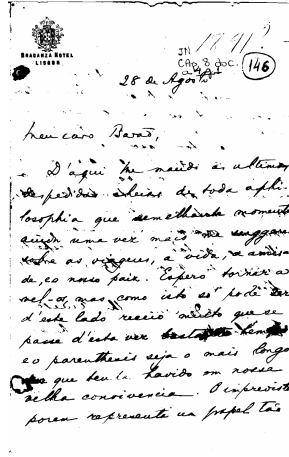 BRAGANZA HOTEL
LISBOA
JN 1891
CAP. 8 doc.
146
28 de Agosto
Meu caro Barão,
D'aqui lhe mando as ultimas
despedidas cheias de toda a phi-
losophia que semelhante momento
ainda uma vez mais me suggere
sobre as viagens, a vida, a amisa-
de, e o nosso paiz. Espero tornar a
vel-o, mas como isto só pode ser
d'este lado receio muito que se
passe d'esta vez bastante tempo
e o parenthesis seja o mais longo
que tenha havido em nossa
velha convivencia. O imprevisto
porem representa um papel tão